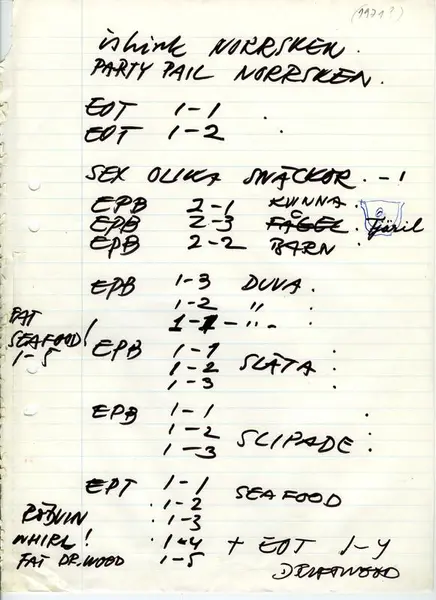 (1971?)
ishink NORRSKEN.
PARTY PAIL NORRSKEN.
EOT 1-1
EOT 1-2
SEX OLIKA SNÄCKOR. -1
EPB 2-1 KVINNA.
EPB 2-3 FÅGEL. Fjäril
EPB 2-2 BARN
EPB 1-3 DUVA.
1-2 "
1-1 - " -
PAT
SEAFOOD!
1-5
EPB 1-1
1-2 SLÄTA
1-3
EPB 1-1
1-2
1-3 SLIPADE
EPT 1-1 SEAFOOD
1-2
1-3
WHIRL! 1-4 + EOT 1-4
FAT DR.WOOD 1-5 DRIFTWOOD